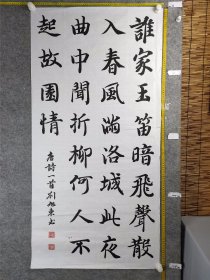 誰家玉笛暗飛聲散
入春風滿洛城此夜
曲中聞折柳何人不
起故園情
唐詩一首劉旭東書